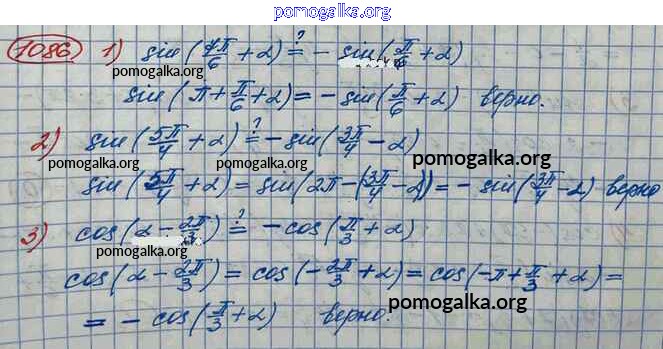 pomogalka.org
1086. 1) sin(7π/6 + α) ≟ - sin(π/6 + α)
pomogalka.org
sin(π + π/6 + α) = - sin(π/6 + α) верно.
2) sin(5π/4 + α) ≟ - sin(3π/4 - α)
pomogalka.org pomogalka.org pomogalka.org
sin(5π/4 + α) = sin(2π - (3π/4 - α)) = - sin(3π/4 - α) верно
3) cos(α - 2π/3) ≟ - cos(π/3 + α)
pomogalka.org
cos(α - 2π/3) = cos(-2π/3 + α) = cos(-π + π/3 + α) =
pomogalka.org
= - cos(π/3 + α) верно.